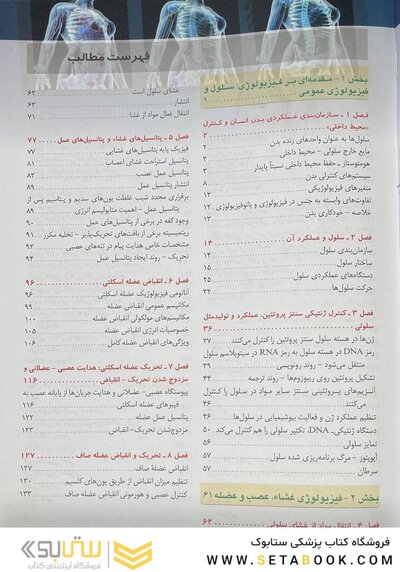 فهرست مطالب
بخش ۱ – مقدمه‌ای بر فیزیولوژی: سلول و
فیزیولوژی عمومی ۱
فصل ۱ – سازمان‌بندی عملکردی بدن انسان و کنترل
«محیط داخلی» ۲
سلول‌ها به عنوان واحدهای زنده بدن ۲
مایع خارج سلولی – محیط داخلی ۳
هومئوستاز – حفظ محیط داخلی نسبتاً پایدار ۳
سیستم‌های کنترلی بدن
متغیرهای فیزیولوژیکی
تفاوت‌های وابسته به جنس در فیزیولوژی و پاتوفیزیولوژی ۱۲
خلاصه – خودکاری بدن ۱۳
فصل ۲ – سلول و عملکرد آن ۱۴
سازمان‌بندی سلول ۱۴
ساختار سلول ۱۵
دستگاه‌های عملکردی سلول ۲۵
حرکت سلول‌ها ۳۲
فصل ۳ – کنترل ژنتیکی سنتز پروتئین، عملکرد و تولیدمثل
سلولی ۳۶
ژن‌ها در هسته سلول سنتز پروتئین را کنترل می‌کنند ۳۷
رمز DNA در هسته سلول به رمز RNA در سیتوپلاسم سلول
منتقل می‌شود – روند رونویسی ۳۹
تشکیل پروتئین روی ریبوزوم‌ها – روند ترجمه ۴۴
آنزیم‌های پروتئینی سنتز سایر مواد در سلول را کنترل
می‌کنند ۴۶
تنظیم عملکرد ژن و فعالیت بیوشیمیایی در سلول‌ها ۴۶
دستگاه ژنتیکی-DNA، تکثیر سلولی را هم کنترل می‌کند ۵۰
تمایز سلولی ۵۶
آپوپتوز – مرگ برنامه‌ریزی شده سلول ۵۷
سرطان ۵۷
بخش ۲ – فیزیولوژی غشاء، عصب و عضله ۶۱
فصل ۴ – انتقال مواد از غشای سلولی ۶۲
غشای سلول است ۶۲
انتشار ۶۳
انتقال فعال مواد از غشا ۷۱
فصل ۵ – پتانسیل‌های غشاء و پتانسیل‌های عمل ۷۷
فیزیک پایه پتانسیل‌های غشایی ۷۷
پتانسیل استراحت غشای اعصاب ۸۱
پتانسیل عمل عصب ۸۳
انتشار پتانسیل عمل ۸۹
برقراری مجدد شیب غلظت یون‌های سدیم و پتاسیم پس از
پتانسیل عمل – اهمیت متابولیسم انرژی ۸۹
وجود کفه در برخی از پتانسیل‌های عمل
ریتمیسیته برخی از بافت‌های تحریک‌پذیر – تخلیه مکرر ۹۱
مشخصات خاص هدایت پیام در تنه‌های عصبی ۹۲
تحریک – روند ایجاد پتانسیل عمل ۹۴
فصل ۶ – انقباض عضله اسکلتی ۹۶
آناتومی فیزیولوژیک عضله اسکلتی ۹۶
مکانیسم عمومی انقباض عضله
مکانیسم‌های مولکولی انقباض عضله ۱۰۰
خصوصیات انرژی انقباض عضله ۱۰۵
ویژگی‌های انقباض عضله کامل ۱۰۶
فصل ۷ – تحریک عضله اسکلتی: هدایت عصبی – عضلانی و
مزدوج شدن تحریک – انقباض ۱۱۶
پیوستگاه عصبی – عضلانی و هدایت جریان‌ها از پایانه عصب به
فیبرهای عضله اسکلتی ۱۱۶
پتانسیل عمل عضله ۱۲۲
مزدوج‌شدن تحریک- انقباض
فصل ۸ – تحریک و انقباض عضله صاف ۱۲۷
انقباض عضله صاف ۱۲۷
تنظیم میزان انقباض از طریق یون‌های کلسیم ۱۳۰
کنترل عصبی و هورمونی انقباض عضله صاف ۱۳۳
ستابوک
فروشگاه اینترنتی کتاب
فروشگاه کتاب پزشکی ستابوک
WWW.SETABOOK.COM